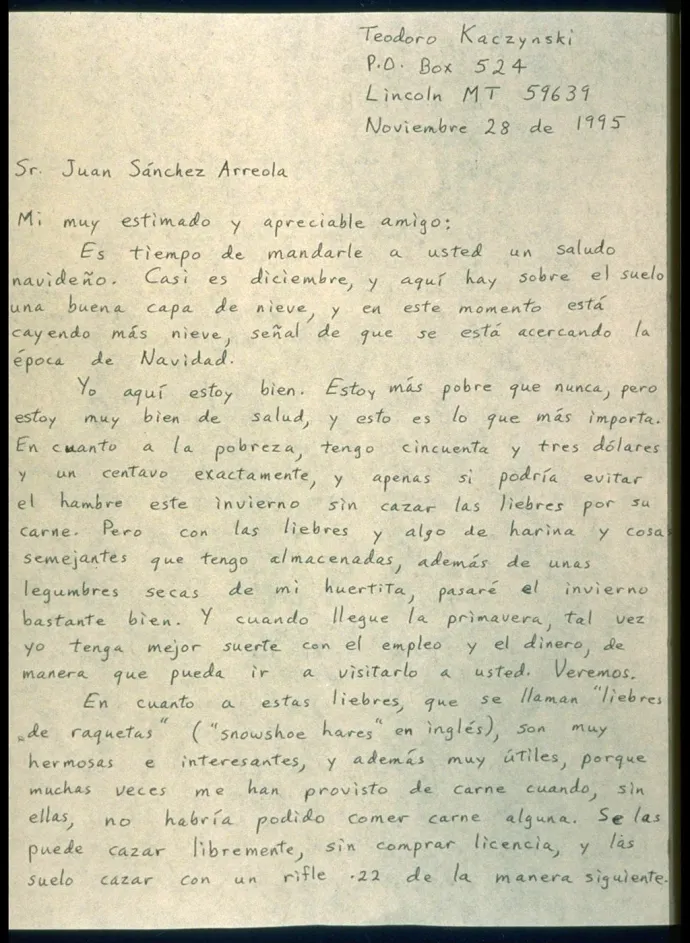 Teodoro Kaczynski
P.O. Box 524
Lincoln MT 59639
Noviembre 28 de 1995
Sr. Juan Sánchez Arreola
Mi muy estimado y apreciable amigo:
Es tiempo de mandarle a usted un saludo
navideño. Casi es diciembre, y aquí hay sobre el suelo
una buena capa de nieve, y en este momento está
cayendo más nieve, señal de que se está acercando la
época de Navidad.
Yo aquí estoy bien. Estoy más pobre que nunca, pero
estoy muy bien de salud, y esto es lo que más importa.
En cuanto a la pobreza, tengo cincuenta y tres dólares
y un centavo exactamente, y apenas si podría evitar
el hambre este invierno sin cazar las liebres por su
carne. Pero con las liebres y algo de harina y cosas
semejantes que tengo almacenadas, además de unas
legumbres secas de mi huertita, pasaré el invierno
bastante bien. Y cuando llegue la primavera, tal vez
yo tenga mejor suerte con el empleo y el dinero, de
manera que pueda ir a visitarlo a usted. Veremos.
En cuanto a estas liebres, que se llaman "liebres
de raquetas" ("snowshoe hares" en inglés), son muy
hermosas e interesantes, y además muy útiles, porque
muchas veces me han provisto de carne cuando, sin
ellas, no habría podido comer carne alguna. Se las
puede cazar libremente, sin comprar licencia, y las
suelo cazar con un rifle .22 de la manera siguiente.